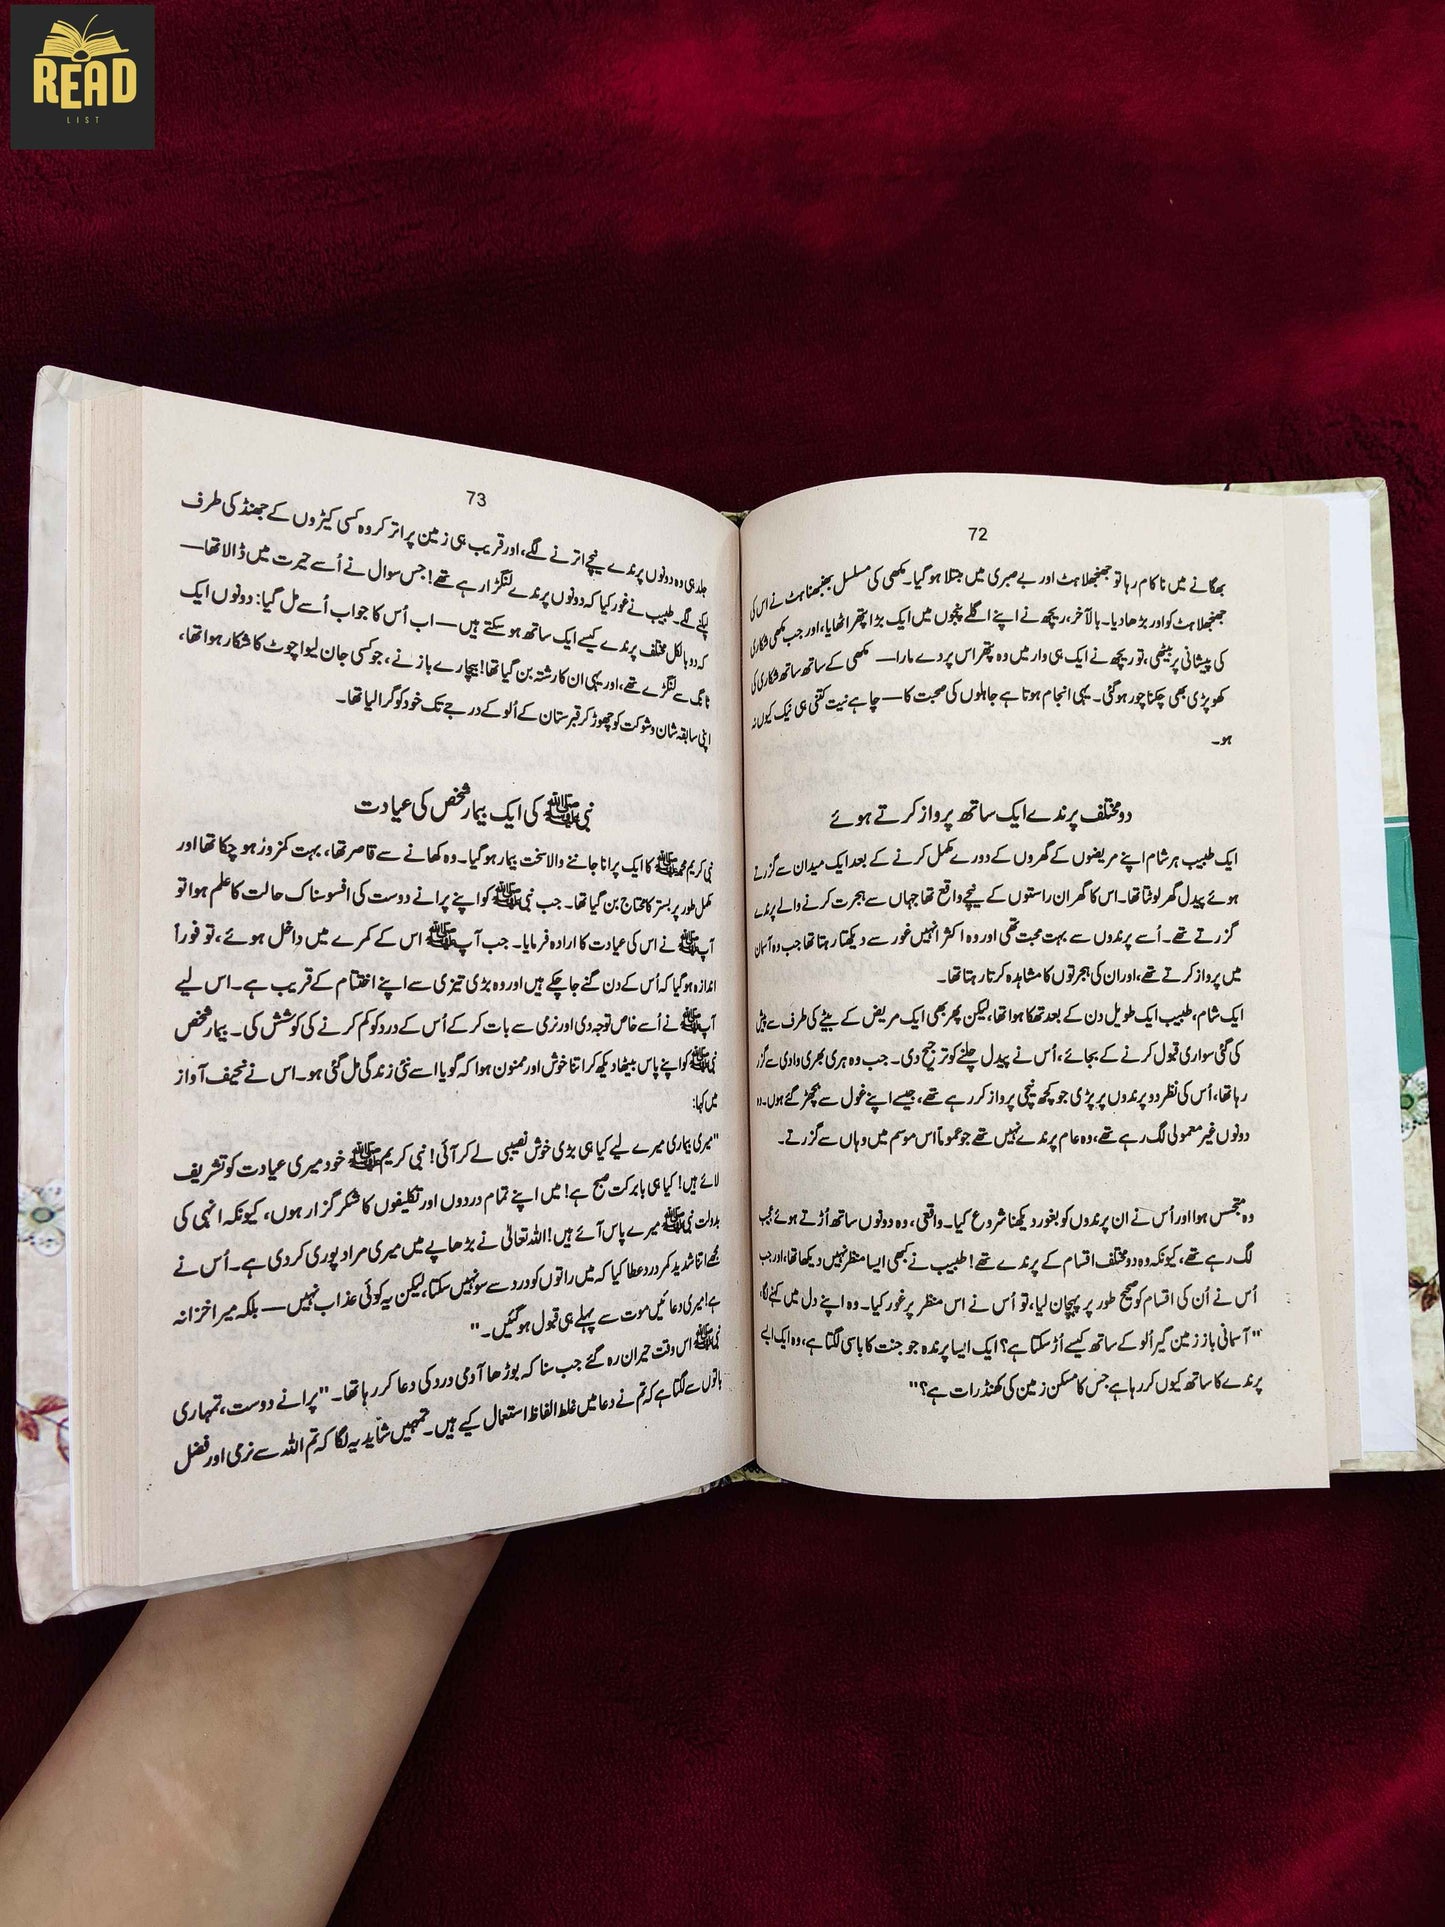 READ
LIST
72
بھگانے میں ناکام رہا تو جھنجھلاہٹ اور بے صبری میں مبتلا ہو گیا۔ مکھی کی مسلسل بھنبھناہٹ نے اس کی
جھنجھلاہٹ کو اور بڑھا دیا۔ بالآخر، ریچھ نے اپنے اگلے پنجوں میں ایک بڑا پتھر اٹھایا، اور جب مکھی شکاری
کی پیشانی پر بیٹھی، تو ریچھ نے ایک ہی وار میں وہ پتھر اس پر دے مارا— مکھی کے ساتھ ساتھ شکاری کی
کھوپڑی بھی چکنا چور ہو گئی۔ یہی انجام ہوتا ہے جاہلوں کی صحبت کا— چاہے نیت کتنی ہی نیک کیوں نہ
ہو۔
دو مختلف پرندے ایک ساتھ پرواز کرتے ہوئے
ایک طبیب ہر شام اپنے مریضوں کے گھروں کے دورے مکمل کرنے کے بعد ایک میدان سے گزرتے
ہوئے پیدل گھر لوٹتا تھا۔ اس کا گھر ان راستوں کے نیچے واقع تھا جہاں سے ہجرت کرنے والے پرندے
گزرتے تھے۔ اُسے پرندوں سے بہت محبت تھی اور وہ اکثر انہیں غور سے دیکھتا رہتا تھا جب وہ آسمان
میں پرواز کرتے تھے، اور ان کی ہجرتوں کا مشاہدہ کرتا رہتا تھا۔
ایک شام، طبیب ایک طویل دن کے بعد تھکا ہوا تھا، لیکن پھر بھی ایک مریض کے بیٹے کی طرف سے پیش
کی گئی سواری قبول کرنے کے بجائے، اُس نے پیدل چلنے کو ترجیح دی۔ جب وہ ہری بھری وادی سے گزر
رہا تھا، اُس کی نظر دو پرندوں پر پڑی جو کچھ نیچی پرواز کر رہے تھے، جیسے اپنے غول سے بچھڑ گئے ہوں۔ وہ
دونوں غیر معمولی لگ رہے تھے، وہ عام پرندے نہیں تھے جو عموماً اس موسم میں وہاں سے گزرتے۔
وہ متجسس ہوا اور اُس نے ان پرندوں کو بغور دیکھنا شروع کیا۔ واقعی، وہ دونوں ساتھ اُڑتے ہوئے عجیب
لگ رہے تھے، کیونکہ وہ دو مختلف اقسام کے پرندے تھے! طبیب نے کبھی ایسا منظر نہیں دیکھا تھا، اور جب
اُس نے اُن کی اقسام کو صحیح طور پر پہچان لیا، تو اُس نے اس منظر پر غور کیا۔ وہ اپنے دل میں کہنے لگا،
"آسمانی باز زمین گیر اُلو کے ساتھ کیسے اُڑ سکتا ہے؟ ایک ایسا پرندہ جو جنت کا باسی لگتا ہے، وہ ایک ایسے
پرندے کا ساتھ کیوں کر رہا ہے جس کا مسکن زمین کی کھنڈرات ہے؟"
73
جلد ہی وہ دونوں پرندے نیچے اترنے لگے، اور قریب ہی زمین پر اتر کر وہ کسی کیڑوں کے جھنڈ کی طرف
لپکنے لگے۔ طبیب نے غور کیا کہ دونوں پرندے لنگڑا رہے تھے! جس سوال نے اُسے حیرت میں ڈالا تھا—
کہ دو بالکل مختلف پرندے کیسے ایک ساتھ ہو سکتے ہیں— اب اُس کا جواب اُسے مل گیا: دونوں ایک
ٹانگ سے لنگڑے تھے، اور یہی ان کا رشتہ بن گیا تھا! بیچارے باز نے، جو کسی جان لیوا چوٹ کا شکار ہوا تھا،
اپنی سابقہ شان و شوکت کو چھوڑ کر قبرستان کے اُلو کے درجے تک خود کو گرا لیا تھا۔
نبی ﷺ کی ایک بیمار شخص کی عیادت
نبی کریم محمد ﷺ کا ایک پرانا جاننے والا سخت بیمار ہو گیا۔ وہ کھانے سے قاصر تھا، بہت کمزور ہو چکا تھا اور
مکمل طور پر بستر کا محتاج بن گیا تھا۔ جب نبی ﷺ کو اپنے پرانے دوست کی افسوسناک حالت کا علم ہوا تو
آپ ﷺ نے اس کی عیادت کا ارادہ فرمایا۔ جب آپ ﷺ اس کے کمرے میں داخل ہوئے، تو فوراً
اندازہ ہو گیا کہ اُس کے دن گنے جا چکے ہیں اور وہ بڑی تیزی سے اپنے اختتام کے قریب ہے۔ اس لیے
آپ ﷺ نے اُسے خاص توجہ دی اور نرمی سے بات کر کے اُس کے درد کو کم کرنے کی کوشش کی۔ بیمار شخص
نبی ﷺ کو اپنے پاس بیٹھا دیکھ کر اتنا خوش اور ممنون ہوا کہ گویا اسے نئی زندگی مل گئی ہو۔ اس نے نحیف آواز
میں کہا:
"میری بیماری میرے لیے کیا ہی بڑی خوش نصیبی لے کر آئی! نبی کریم ﷺ خود میری عیادت کو تشریف
لائے ہیں! کیا ہی بابرکت صبح ہے! میں اپنے تمام دردوں اور تکلیفوں کا شکر گزار ہوں، کیونکہ انہی کی
بدولت نبی ﷺ میرے پاس آئے ہیں! اللہ تعالیٰ نے بڑھاپے میں میری مراد پوری کر دی ہے۔ اُس نے
مجھے اتنا شدید کمر درد عطا کیا کہ میں راتوں کو درد سے سو نہیں سکتا، لیکن یہ کوئی عذاب نہیں— بلکہ میرا خزانہ
ہے! میری دعائیں موت سے پہلے ہی قبول ہو گئیں۔"
نبی ﷺ اس وقت حیران رہ گئے جب سنا کہ بوڑھا آدمی درد کی دعا کر رہا تھا۔ "پرانے دوست، تمہاری
باتوں سے لگتا ہے کہ تم نے دعا میں غلط الفاظ استعمال کیے ہیں۔ تمہیں شاید یہ لگا کہ تم اللہ سے نرمی اور فضل